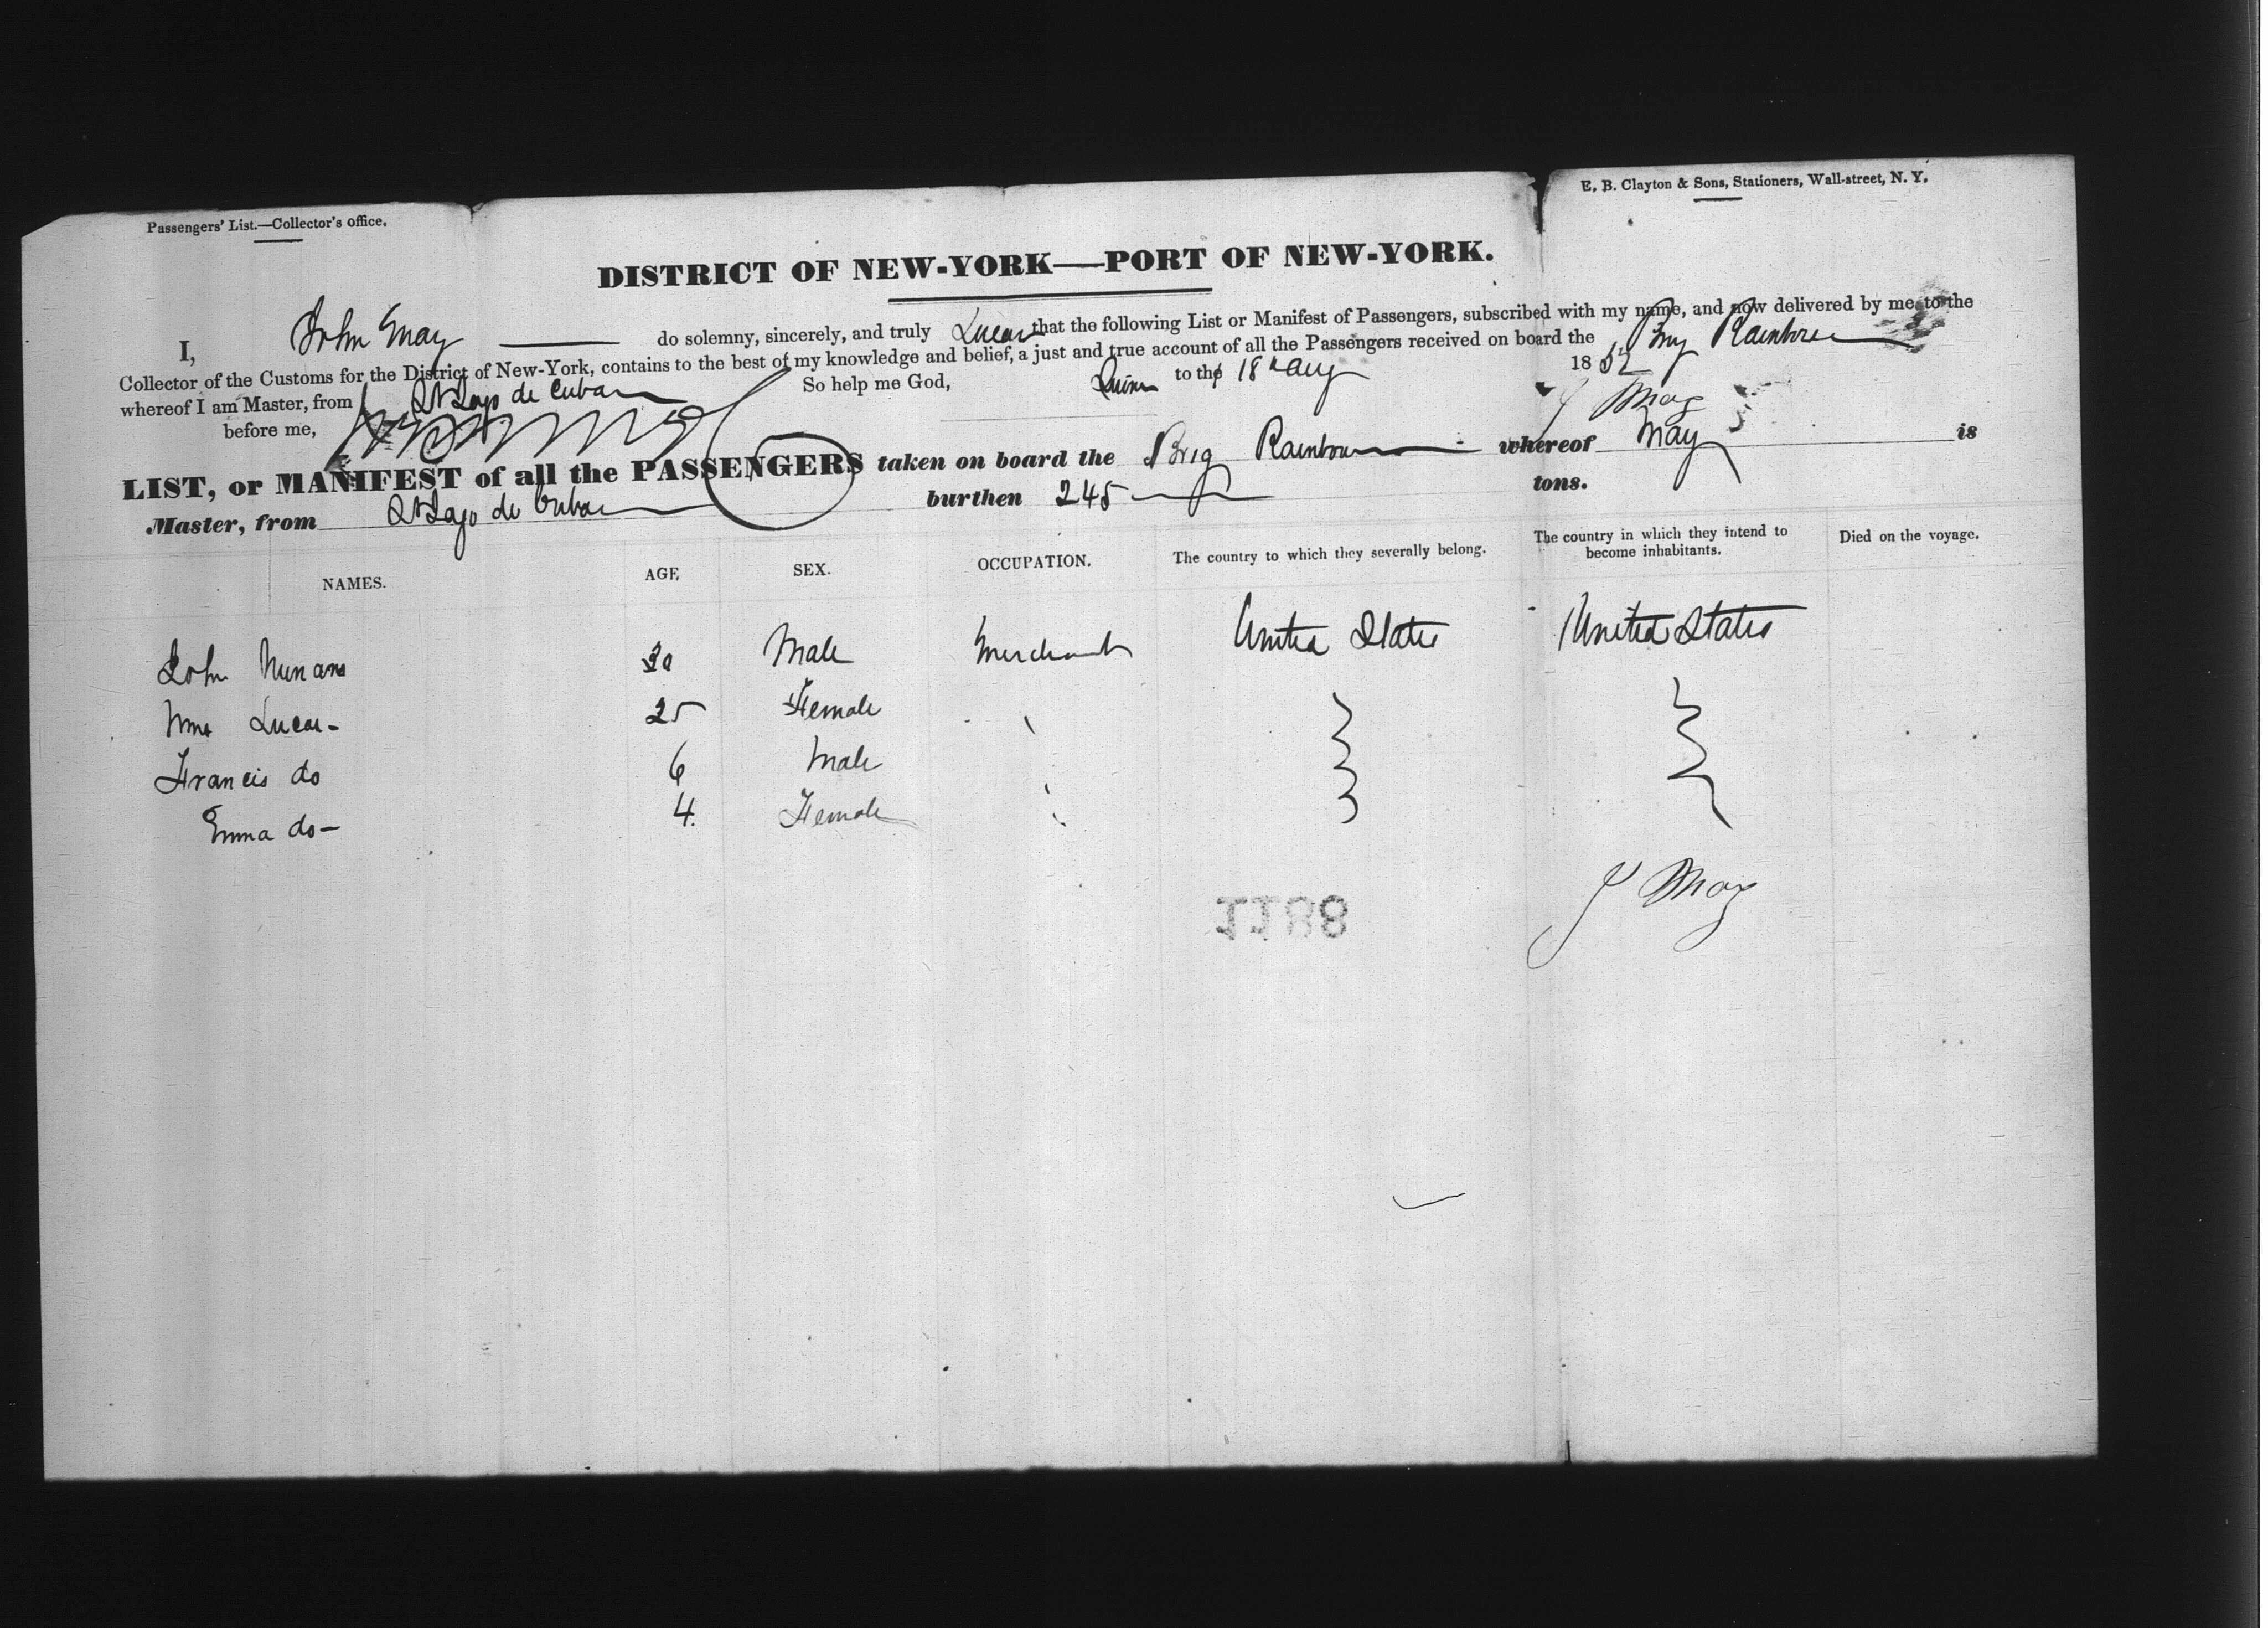 Passengers' List.—Collector's office.
E. B. Clayton & Sons, Stationers, Wall-street, N. Y.
DISTRICT OF NEW-YORK—PORT OF NEW-YORK.
I, John May do solemny, sincerely, and truly that the following List or Manifest of Passengers, subscribed with my name, and now delivered by me to the
Collector of the Customs for the District of New-York, contains to the best of my knowledge and belief, a just and true account of all the Passengers received on board the Brig Rainbow
whereof I am Master, from St Iago de Cuba So help me God,
to the 18th Aug 1852
before me, J May
LIST, or MANIFEST of all the PASSENGERS taken on board the Brig Rainbow whereof May is
Master, from St Iago de Cuba burthen 245 tons.
NAMES. AGE SEX. OCCUPATION. The country to which they severally belong. The country in which they intend to become inhabitants. Died on the voyage.
John 30 Male Merchant United States United States
25 Female
Francis do 6 Male
Emma do— 4. Female
J May
1188